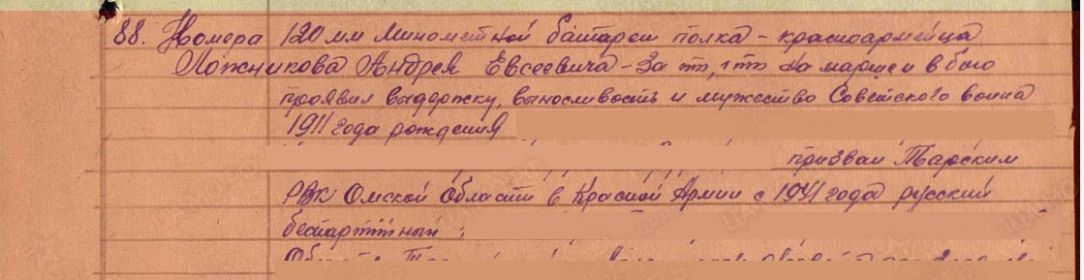 88. Номера 120 мм Минометной батареи полка - красноармейца
Ложникова Андрея Евсеевича - За то, что на марше и в бою
проявил выдержку, выносливость и мужество Советского воина
1911 года рождения
призван Тарским
РВК Омской области в Красной Армии с 1941 года русский
беспартийный